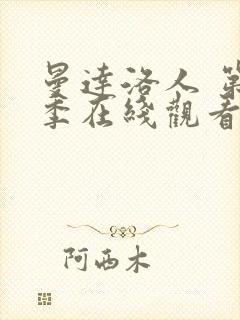 曼達洛人 第
季在綫觀看
阿西木